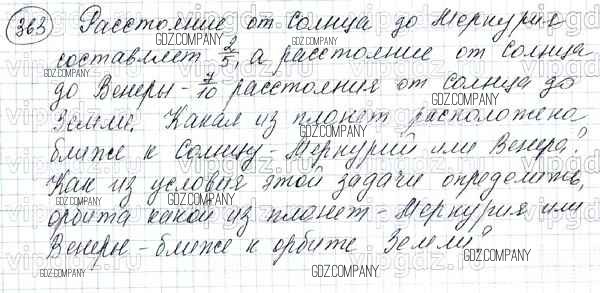 363 Расстояние от Солнца до Меркурия
составляет 2/5, а расстояние от Солнца
до Венеры - 7/10 расстояния от Солнца до
Земли. Какая из планет расположена
ближе к Солнцу - Меркурий или Венера?
Как из условия этой задачи определить,
орбита какой из планет - Меркурия или
Венеры - ближе к орбите Земли?
GDZ.COMPANY
vipgdz.ru